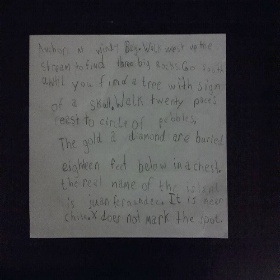 Anchor in pirate Bay. Walk west up the
stream to find three big rocks. Go south
until you find a tree with sign
of a skull. Walk twenty paces
east to circle of pebbles.
The gold & diamond are buried
eighteen feet below in a chest.
the real name of the island
is juan fernandez. It is near
chile. X does not mark the spot.